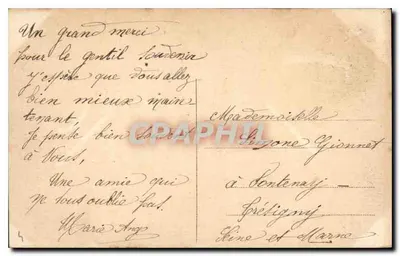 Un grand merci
pour le gentil souvenir
J'espère que vous allez
bien mieux main
tenant,
Je pense bien souvent
à Vous,
Une amie qui
ne vous oublie pas.
Marie Ange
CPARAMA
Mademoiselle
Suzanne Gionnet
à Fontenay-
Trésigny
Seine et Marne